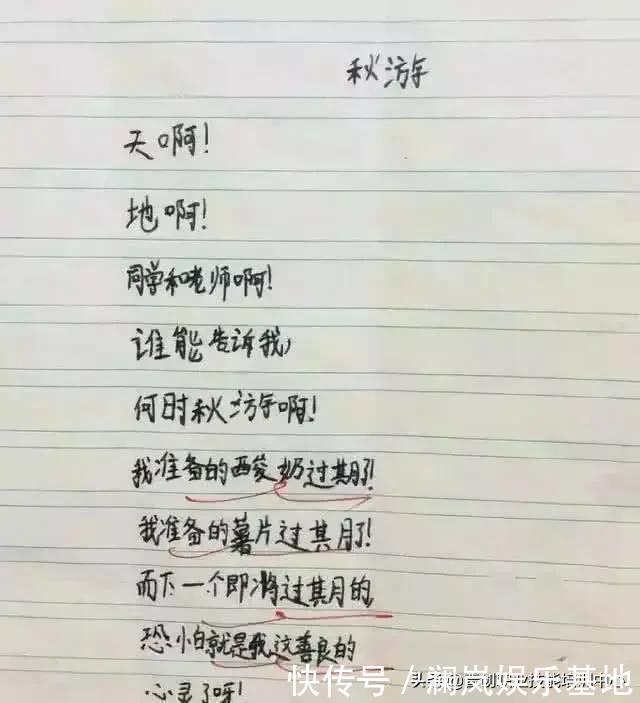 秋游
天啊!
地啊!
同学和老师啊!
谁能告诉我,
何时秋游啊!
我准备的酸奶过期了!
我准备的薯片过期了!
而下一个即将过期的,
恐怕就是我这善良的
心灵了呀!
快传号/澜岚娱乐基地